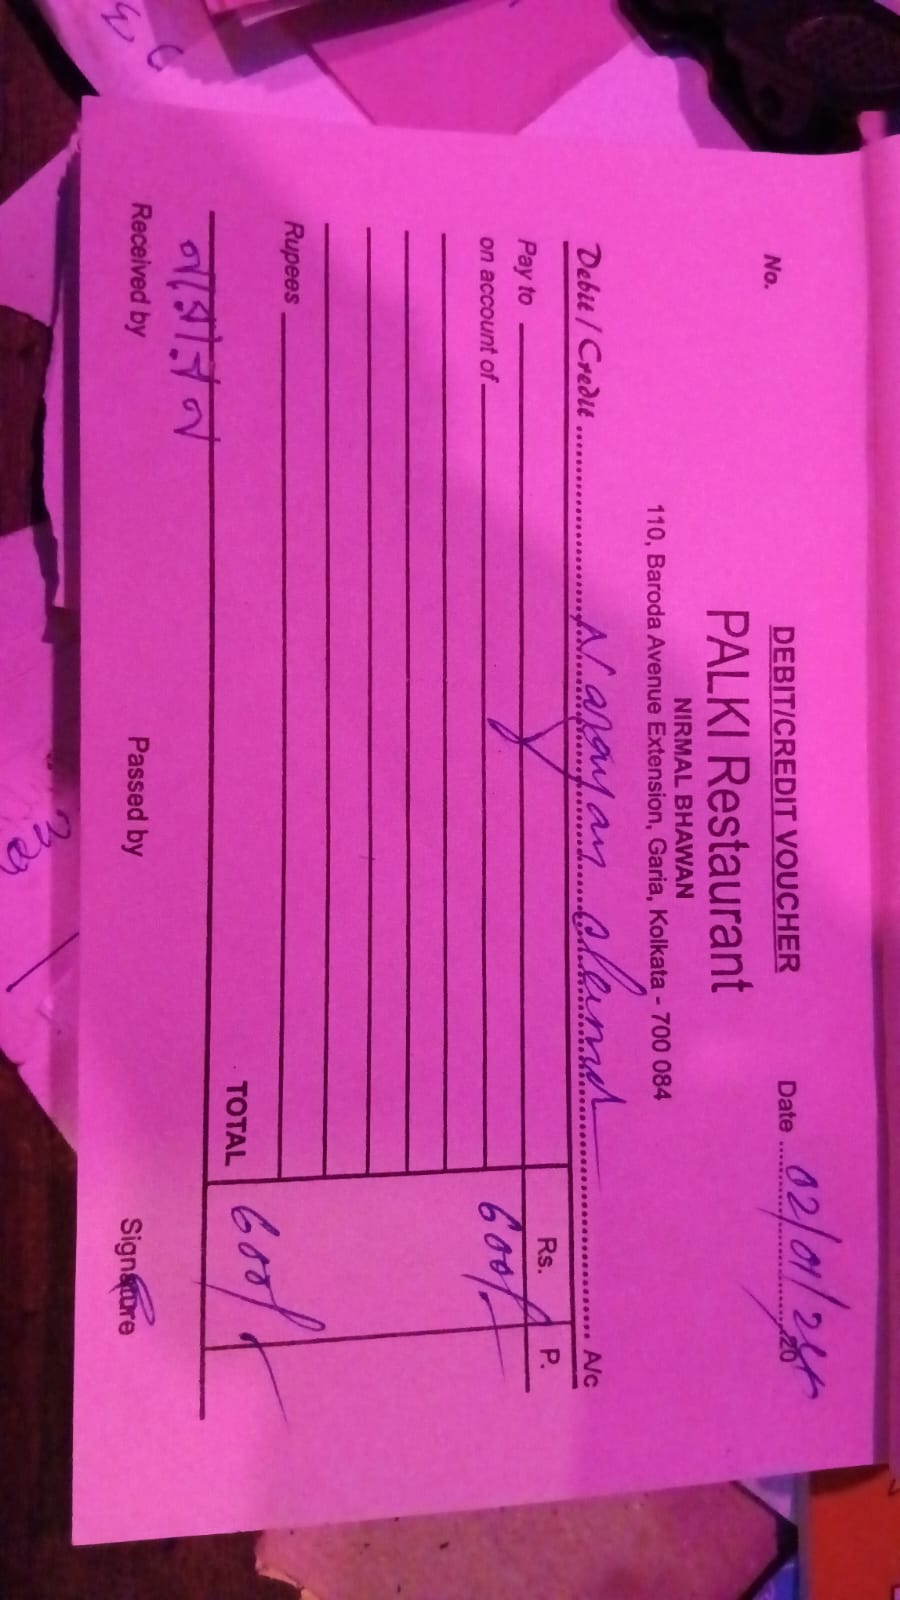 DEBIT/CREDIT VOUCHER
No. Date 02/01/24 20
PALKI Restaurant
NIRMAL BHAWAN
110, Baroda Avenue Extension, Garia, Kolkata - 700 084
Debit / Credit Narayan A/c
Rs. P.
Pay to 600/-
on account of
Rupees
TOTAL 600/-
নারায়ন
Received by Passed by Signature